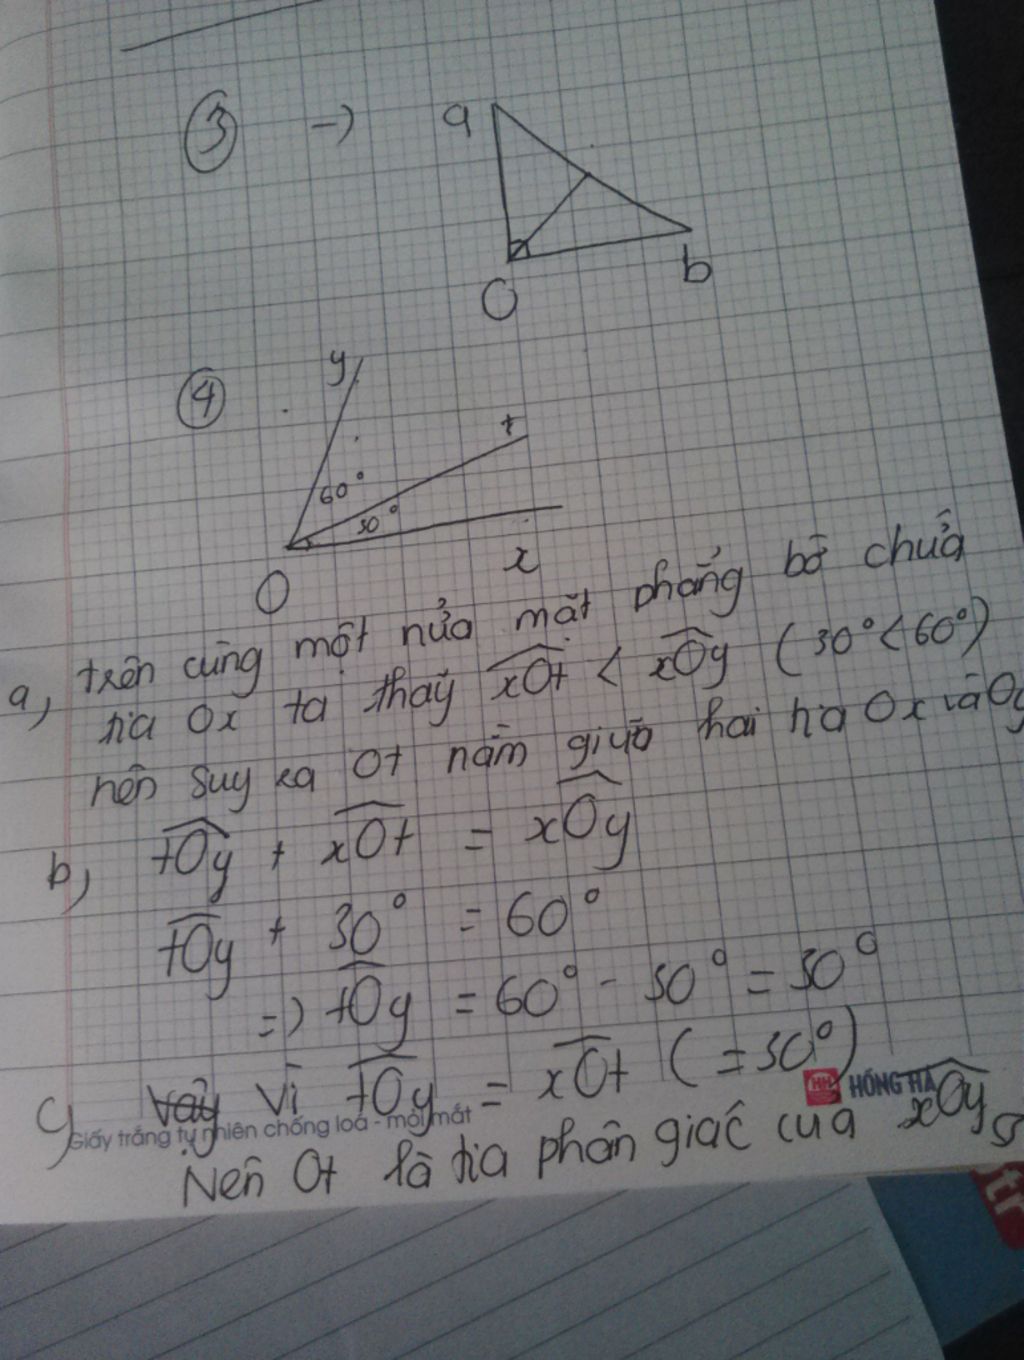 3 → a
O b
4 y
t
60°
30°
x
O
a, trên cùng một nửa mặt phẳng bờ chứa
tia Ox ta thấy xOt < xOy (30° < 60°)
nên suy ra Ot nằm giữa hai tia Ox và Oy
b, tOy + xOt = xOy
tOy + 30° = 60°
=> tOy = 60° - 30° = 30°
c, Vậy Vì tOy = xOt (= 30°)
HH HỒNG HÀ
Giấy trắng tự nhiên chống loá - mỏi mắt
Nên Ot là tia phân giác của xOy